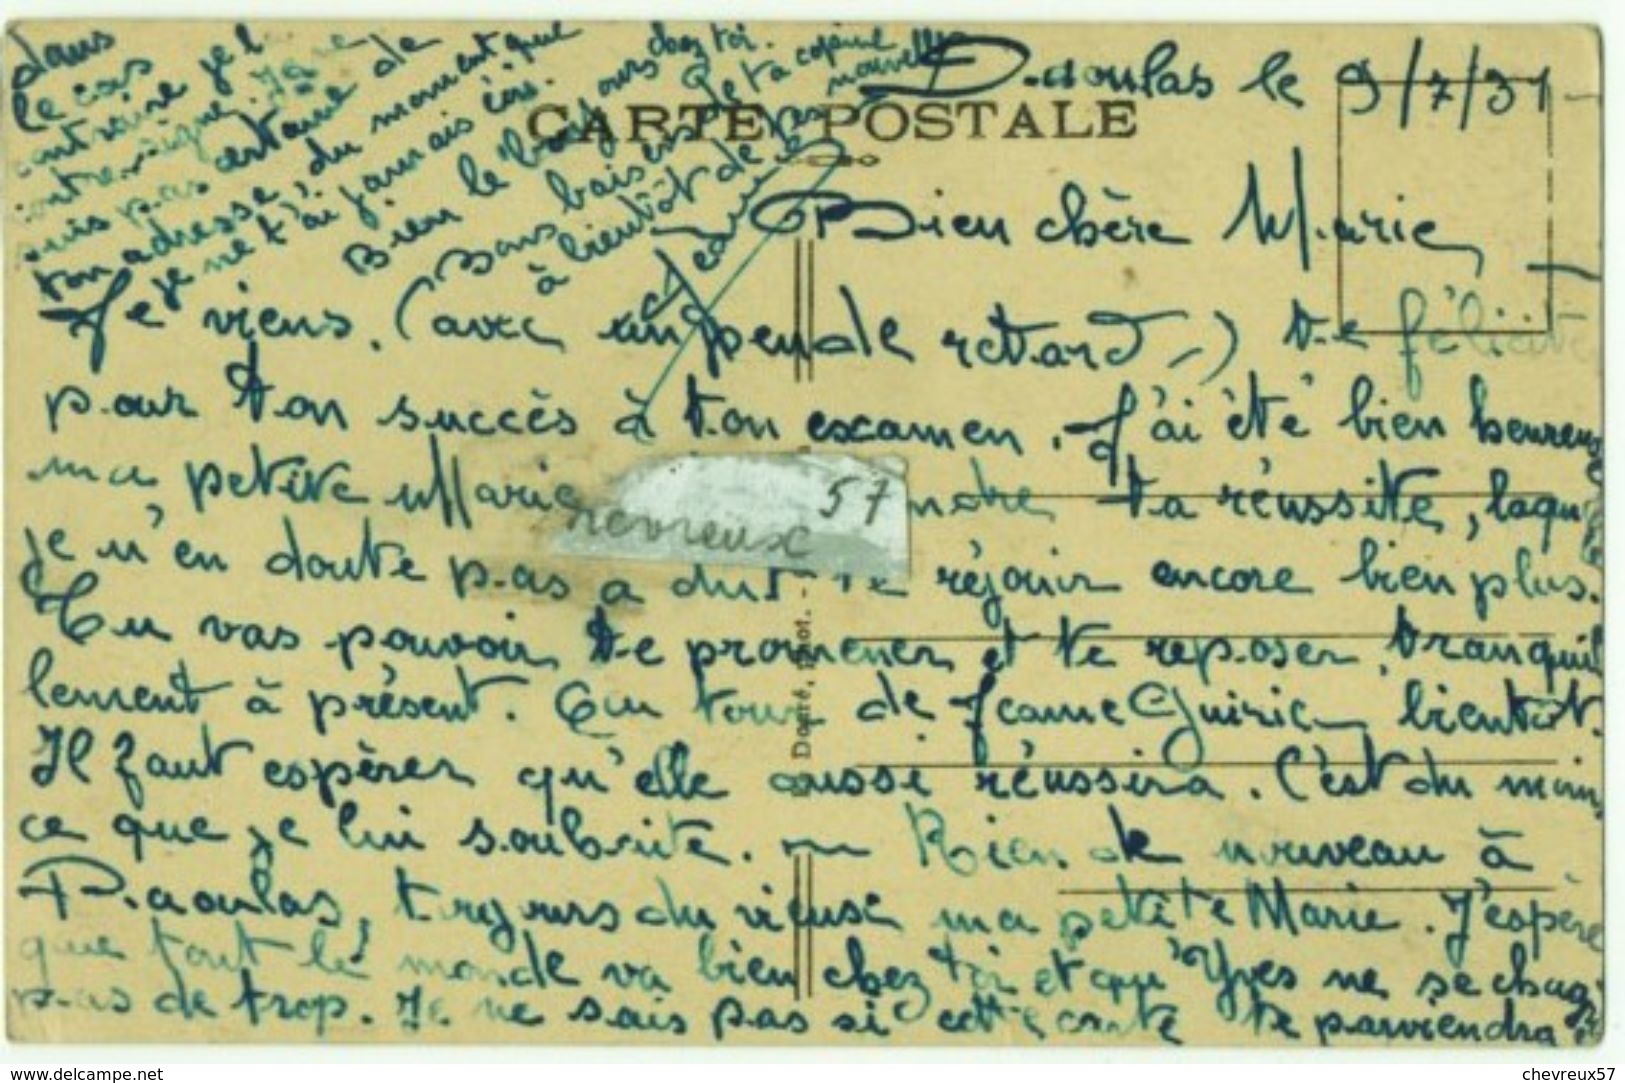 Daoulas le 9/7/31
CARTE POSTALE
Bien chère Marie,
Je viens, (avec un peu de retard) te félicite
pour ton succès à ton examen. J'ai été bien heureuse
ma petite Marie ndre ta réussite, laquelle
je n'en doute pas a dut te réjouir encore bien plus.
Tu vas pouvoir te promener et te reposer tranquil
lement à présent. Au tour de Jeanne Guiric bientôt.
Il faut espérer qu'elle aussi réussira. C'est du moins
ce que je lui souhaite. Rien de nouveau à
Daoulas, toujours du vieux ma petite Marie. J'espère
que tout le monde va bien chez toi et qu'Yves ne se chag
pas de trop. Je ne sais pas si cette carte te parviendra
dans
le cas
contraire je l
Je ne
suis pas certaine de
ton adresse, du moment que
je ne t'ai jamais écris.
Bien le bonjours chez toi.
Bons baisers et
à bientôt de tes nouvelles
ta copine
Jeanne
57
hevreux
www.delcampe.net
chevreux57